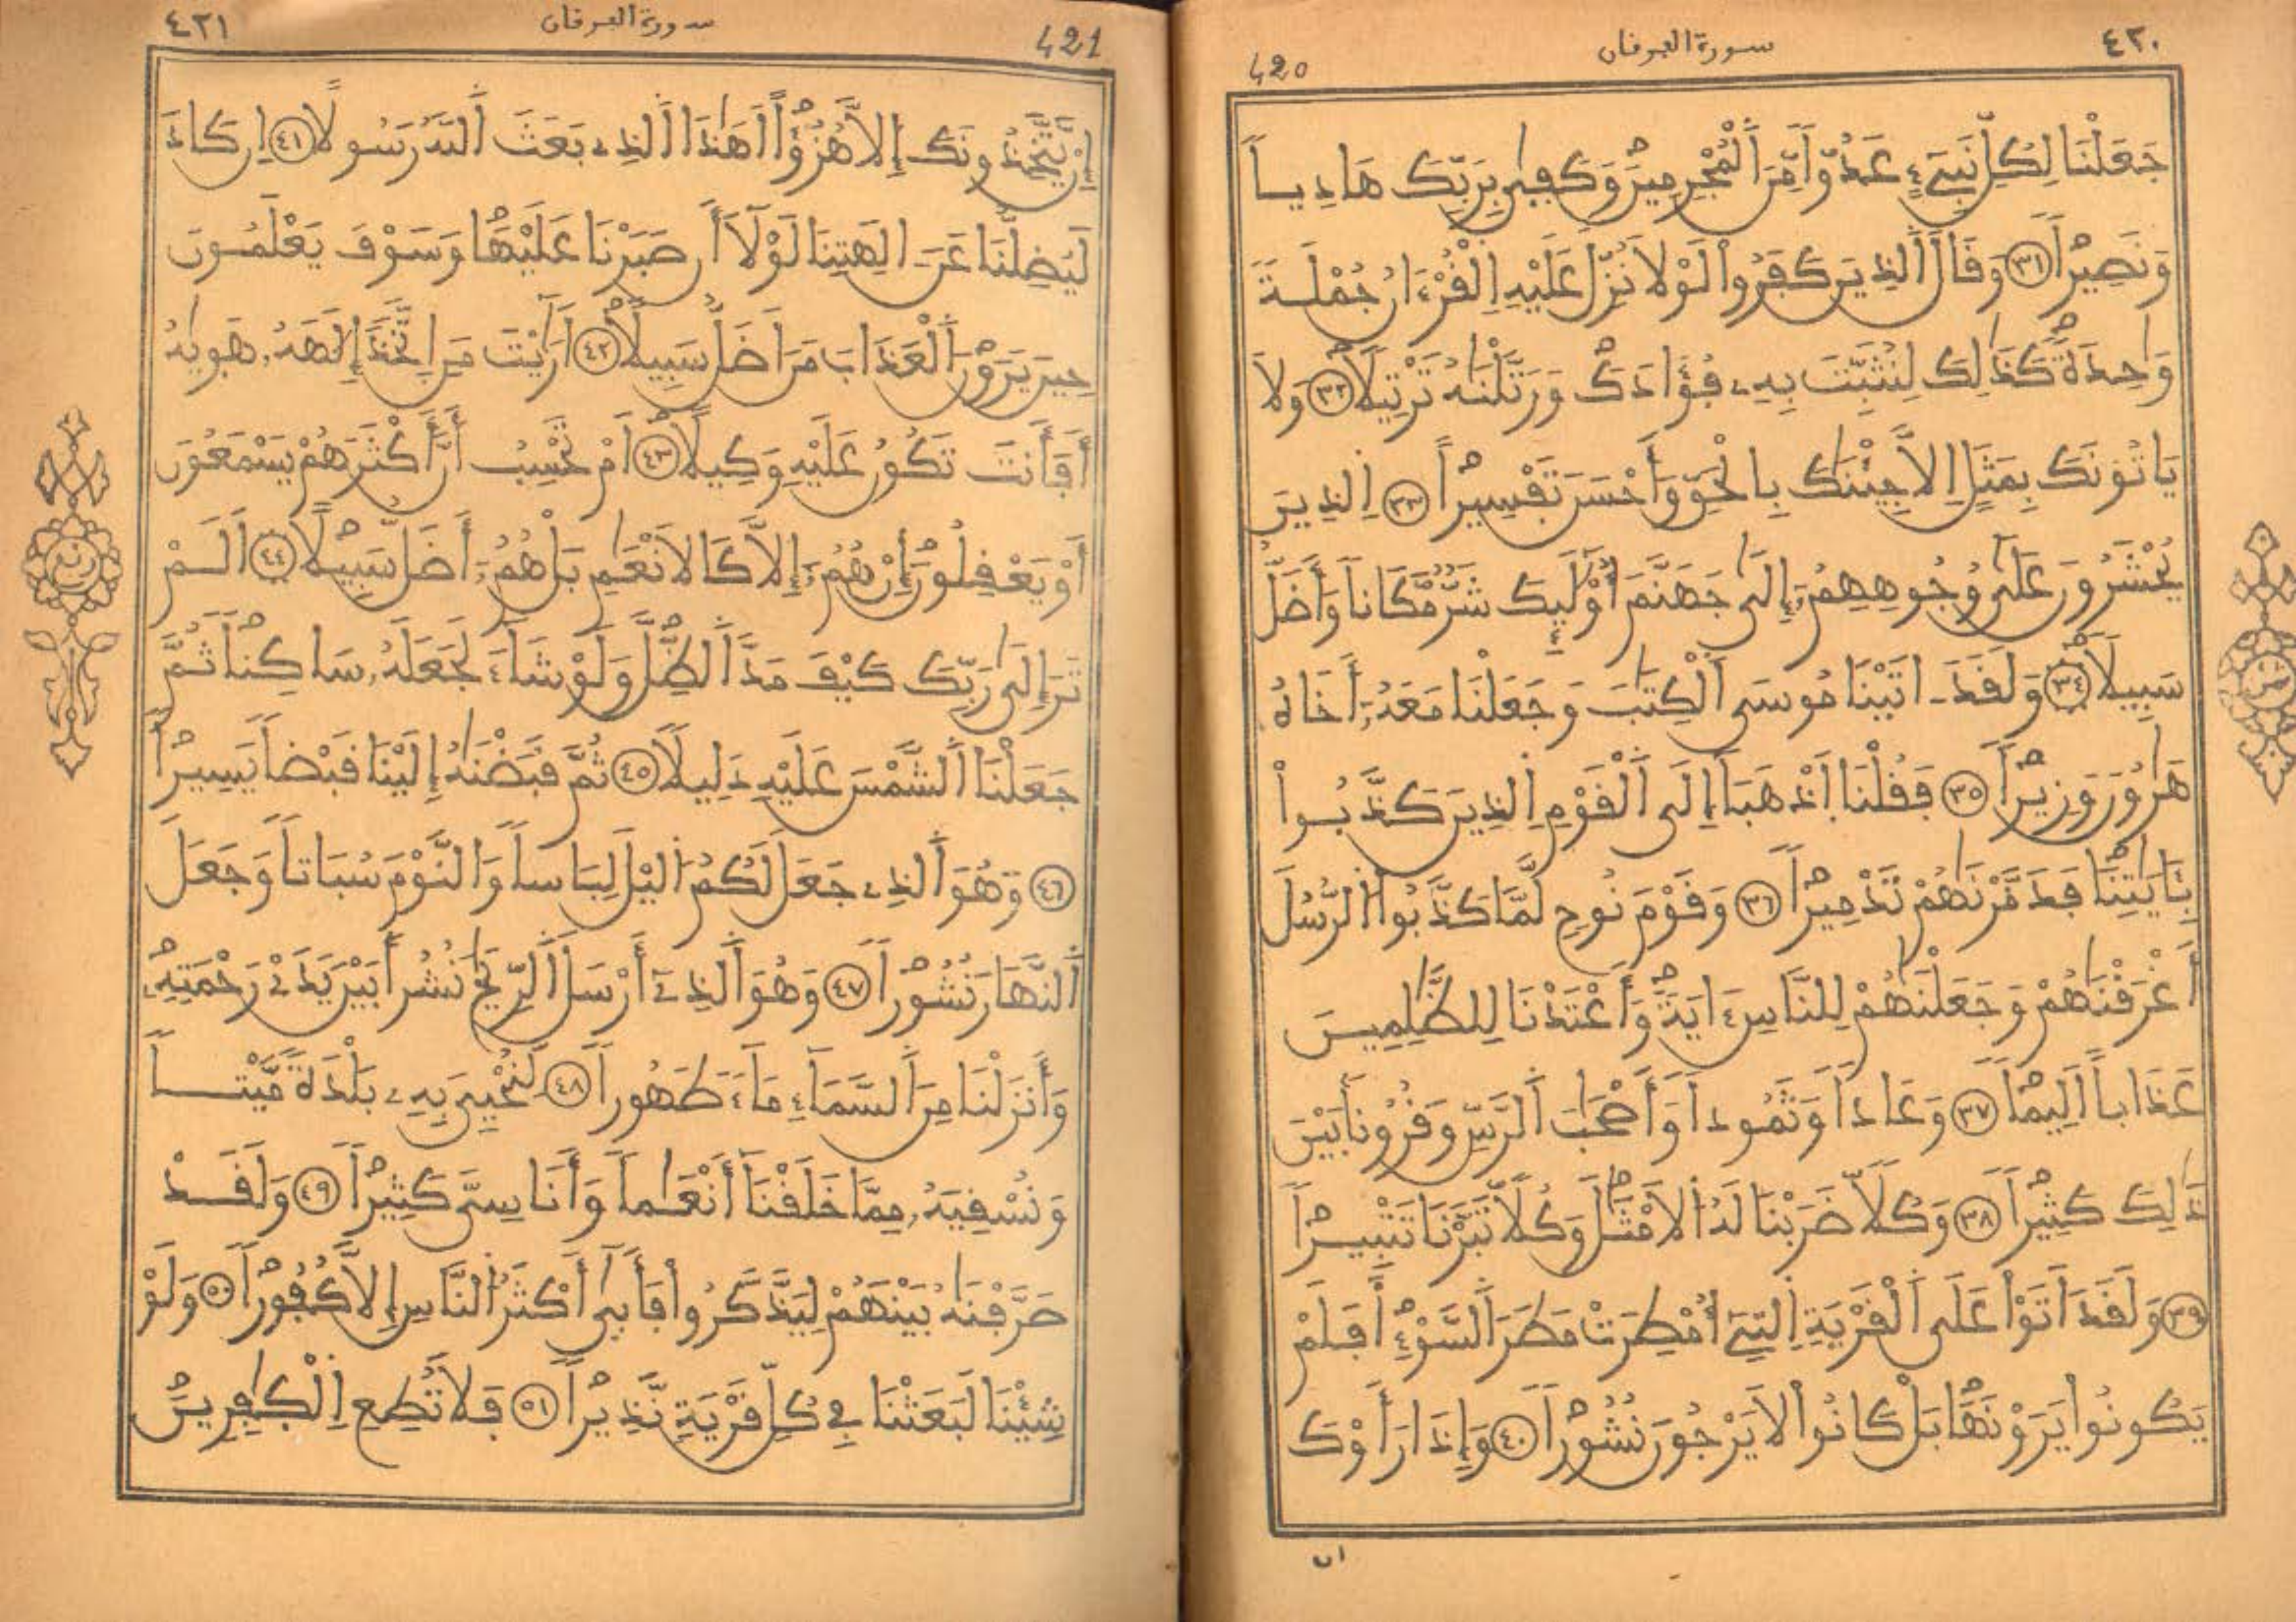 ٤٢٠
سورة الفرقان
420
جَعَلْنَا لِكُلِّ نَبِيٓءٍ عَدُوّاً مِّنَ ٱلْمُجْرِمِينَ وَكَفِىٰ بِرَبِّكَ هَادِياً
وَنَصِيراً ٣١ وَقَالَ ٱلذِينَ كَفَرُواْ لَوْلاَ نُزِّلَ عَلَيْهِ اِ۬لْقُرْءَانُ جُمْلَةً
وَٰحِدَةً كَذَٰلِكَ لِنُثَبِّتَ بِهِۦ فُؤَادَكَ وَرَتَّلْنَٰهُ تَرْتِيلاً ٣٢ وَلاَ
يَاتُونَكَ بِمَثَلٍ اِلاَّ جِئْنَٰكَ بِالْحَقِّ وَأَحْسَنَ تَفْسِيراً ٣٣ اِ۬لذِينَ
يُحْشَرُونَ عَلَىٰ وُجُوهِهِمُۥٓ إِلَىٰ جَهَنَّمَ أُوْلَٰٓئِكَ شَرٌّ مَّكَاناً وَأَضَلُّ
سَبِيلاً ٣٤ وَلَقَدَ اٰتَيْنَا مُوسَى ٱلْكِتَٰبَ وَجَعَلْنَا مَعَهُۥٓ أَخَاهُ
هَٰرُونَ وَزِيراً ٣٥ فَقُلْنَا اَ۪ذْهَبَا إِلَى ٱلْقَوْمِ اِ۬لذِينَ كَذَّبُواْ
بِـَٔايَٰتِنَا فَدَمَّرْنَٰهُمْ تَدْمِيراً ٣٦ وَقَوْمَ نُوحٍ لَّمَّا كَذَّبُواْ اُ۬لرُّسُلَ
أَغْرَقْنَٰهُمْ وَجَعَلْنَٰهُمْ لِلنَّاسِ ءَايَةً وَأَعْتَدْنَا لِلظَّٰلِمِينَ
عَذَاباً أَلِيماً ٣٧ وَعَاداً وَثَمُوداً وَأَصْحَٰبَ ٱلرَّسِّ وَقُرُوناً بَيْنَ
ذَٰلِكَ كَثِيراً ٣٨ وَكُلاًّ ضَرَبْنَا لَهُ اُ۬لاَمْثَٰلَ وَكُلاًّ تَبَّرْنَا تَتْبِيراً
٣٩ وَلَقَدَ اَتَوْاْ عَلَى ٱلْقَرْيَةِ اِ۬لتِےٓ أُمْطِرَتْ مَطَرَ ٱلسَّوْءِ أَفَلَمْ
يَكُونُواْ يَرَوْنَهَا بَلْ كَانُواْ لاَ يَرْجُونَ نُشُوراً ٤٠ وَإِذَا رَأَوْكَ
ثمن
٤٢١
سورة الفرقان
421
إِنْ يَّتَّخِذُونَكَ إِلاَّ هُزُؤاً اَهَٰذَا اَ۬لذِے بَعَثَ ٱللَّهُ رَسُولاً ٤١ اِن كَادَ
لَيُضِلُّنَا عَنَ اٰلِهَتِنَا لَوْلَآ أَن صَبَرْنَا عَلَيْهَا وَسَوْفَ يَعْلَمُونَ
حِينَ يَرَوْنَ ٱلْعَذَابَ مَنَ اَضَلُّ سَبِيلاً ٤٢ اَرَٰٓيْتَ مَنِ اِ۪تَّخَذَ إِلَٰهَهُۥ هَوِيٰهُ
أَفَأَنتَ تَكُونُ عَلَيْهِ وَكِيلاً ٤٣ اَمْ تَحْسِبُ أَنَّ أَكْثَرَهُمْ يَسْمَعُونَ
أَوْ يَعْقِلُونَ إِنْ هُمُۥٓ إِلاَّ كَالاَنْعَٰمِ بَلْ هُمُۥٓ أَضَلُّ سَبِيلاً ٤٤ اَلَمْ
تَرَ إِلَىٰ رَبِّكَ كَيْفَ مَدَّ ٱلظِّلَّ وَلَوْ شَآءَ لَجَعَلَهُۥ سَاكِناً ثُمَّ
جَعَلْنَا ٱلشَّمْسَ عَلَيْهِ دَلِيلاً ٤٥ ثُمَّ قَبَضْنَٰهُ إِلَيْنَا قَبْضاً يَسِيراً
٤٦ وَهُوَ ٱلذِے جَعَلَ لَكُمُ اُ۬ليْلَ لِبَاساً وَالنَّوْمَ سُبَاتاً وَجَعَلَ
ٱلنَّهَارَ نُشُوراً ٤٧ وَهُوَ ٱلذِےٓ أَرْسَلَ ٱلرِّيَٰحَ نُشُراً بَيْنَ يَدَےْ رَحْمَتِهِۦ
وَأَنزَلْنَا مِنَ ٱلسَّمَآءِ مَآءً طَهُوراً ٤٨ لِّنُحْيِىَ بِهِۦ بَلْدَةً مَّيْتاً
وَنُسْقِيَهُۥ مِمَّا خَلَقْنَا أَنْعَٰماً وَأَنَاسِىَّ كَثِيراً ٤٩ وَلَقَدْ
صَرَّفْنَٰهُ بَيْنَهُمْ لِيَذَّكَّرُواْ فَأَبِىٰٓ أَكْثَرُ اُ۬لنَّاسِ إِلاَّ كُفُوراً ٥٠ وَلَوْ
شِئْنَا لَبَعَثْنَا فِے كُلِّ قَرْيَةٍ نَّذِيراً ٥١ فَلاَ تُطِعِ اِ۬لْكٰفِرِينَ
ربع